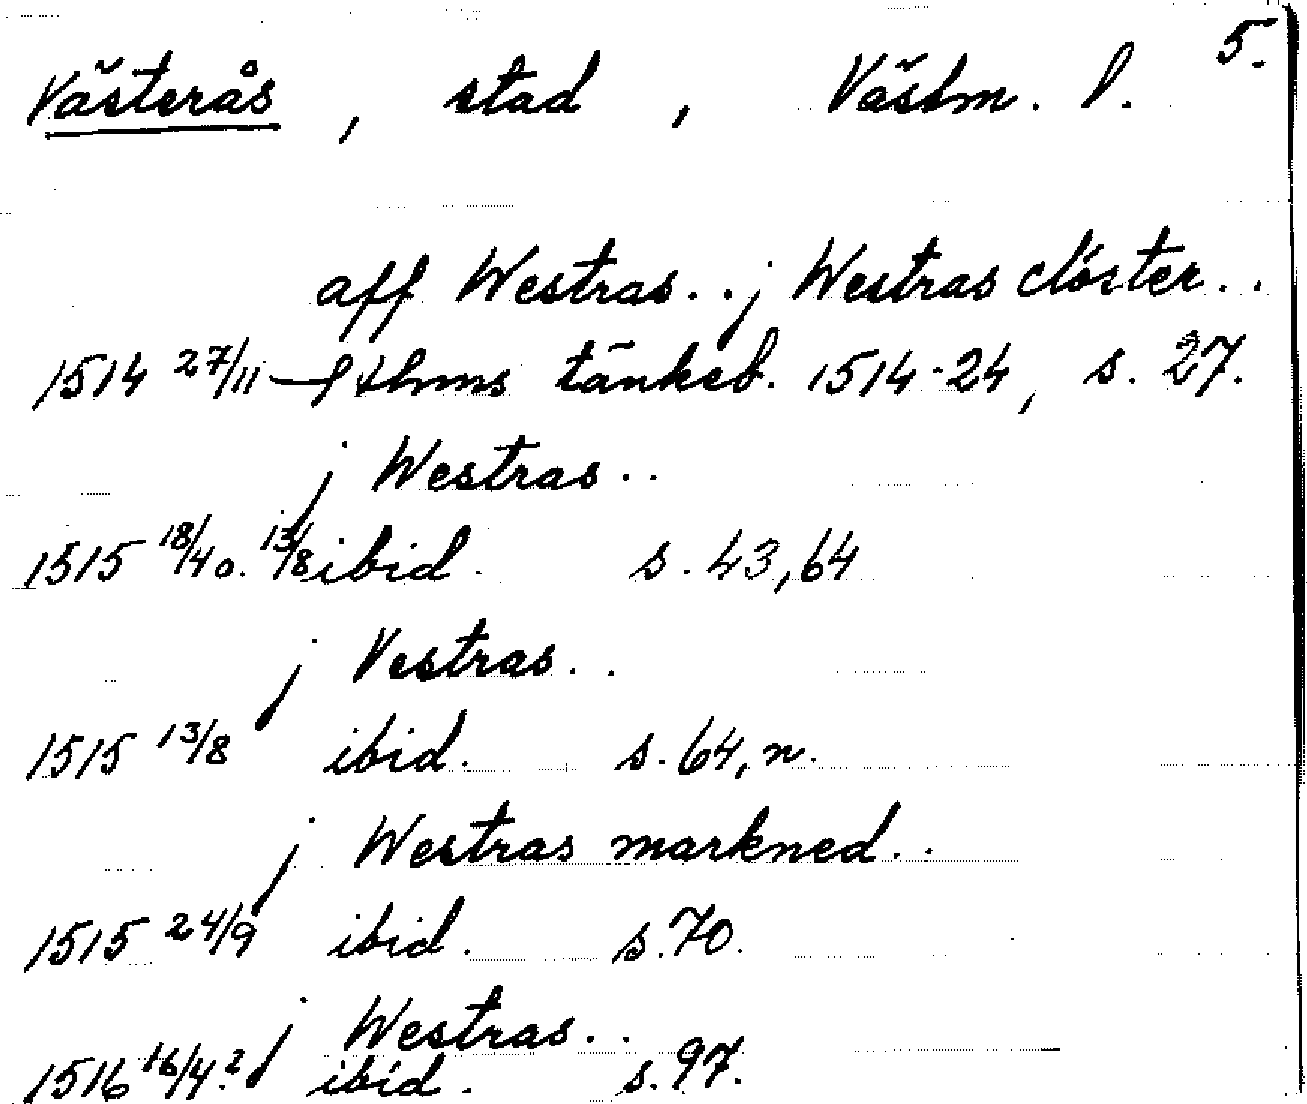 5.
Västerås, stad, Västm. l.
aff Westras.. j Westras clöster..
1514 27/11 Sthms tänkeb. 1514-24, s. 27.
j Westras..
1515 18/4 o. 13/8 ibid. s. 43, 64
j Vestras..
1515 13/8 ibid. s. 64, n.
j Westras markned..
1515 24/9 ibid. s. 70.
j Westras..
1516 16/4.2 ibid. s. 97.